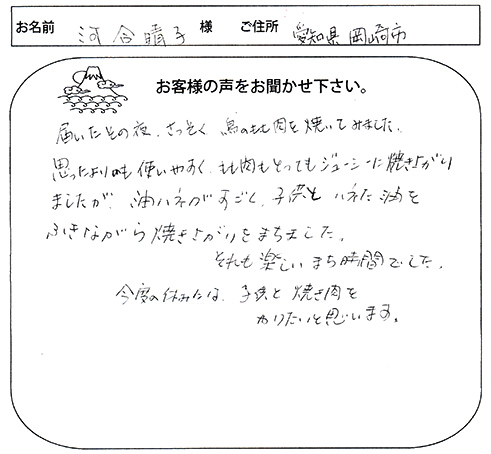 お名前 河合晴子 様 ご住所 愛知県岡崎市
お客様の声をお聞かせ下さい。
届いたその夜、さっそく鳥のもも肉を焼いてみました。
思ったよりも使いやすく、もも肉もとってもジューシーに焼き上がり
ましたが、油ハネがすごく、子供とハネた油を
ふきながら焼き上がりをまちました。
それも楽しいまち時間でした。
今度の休みには、子供と焼き肉を
やりたいと思います。